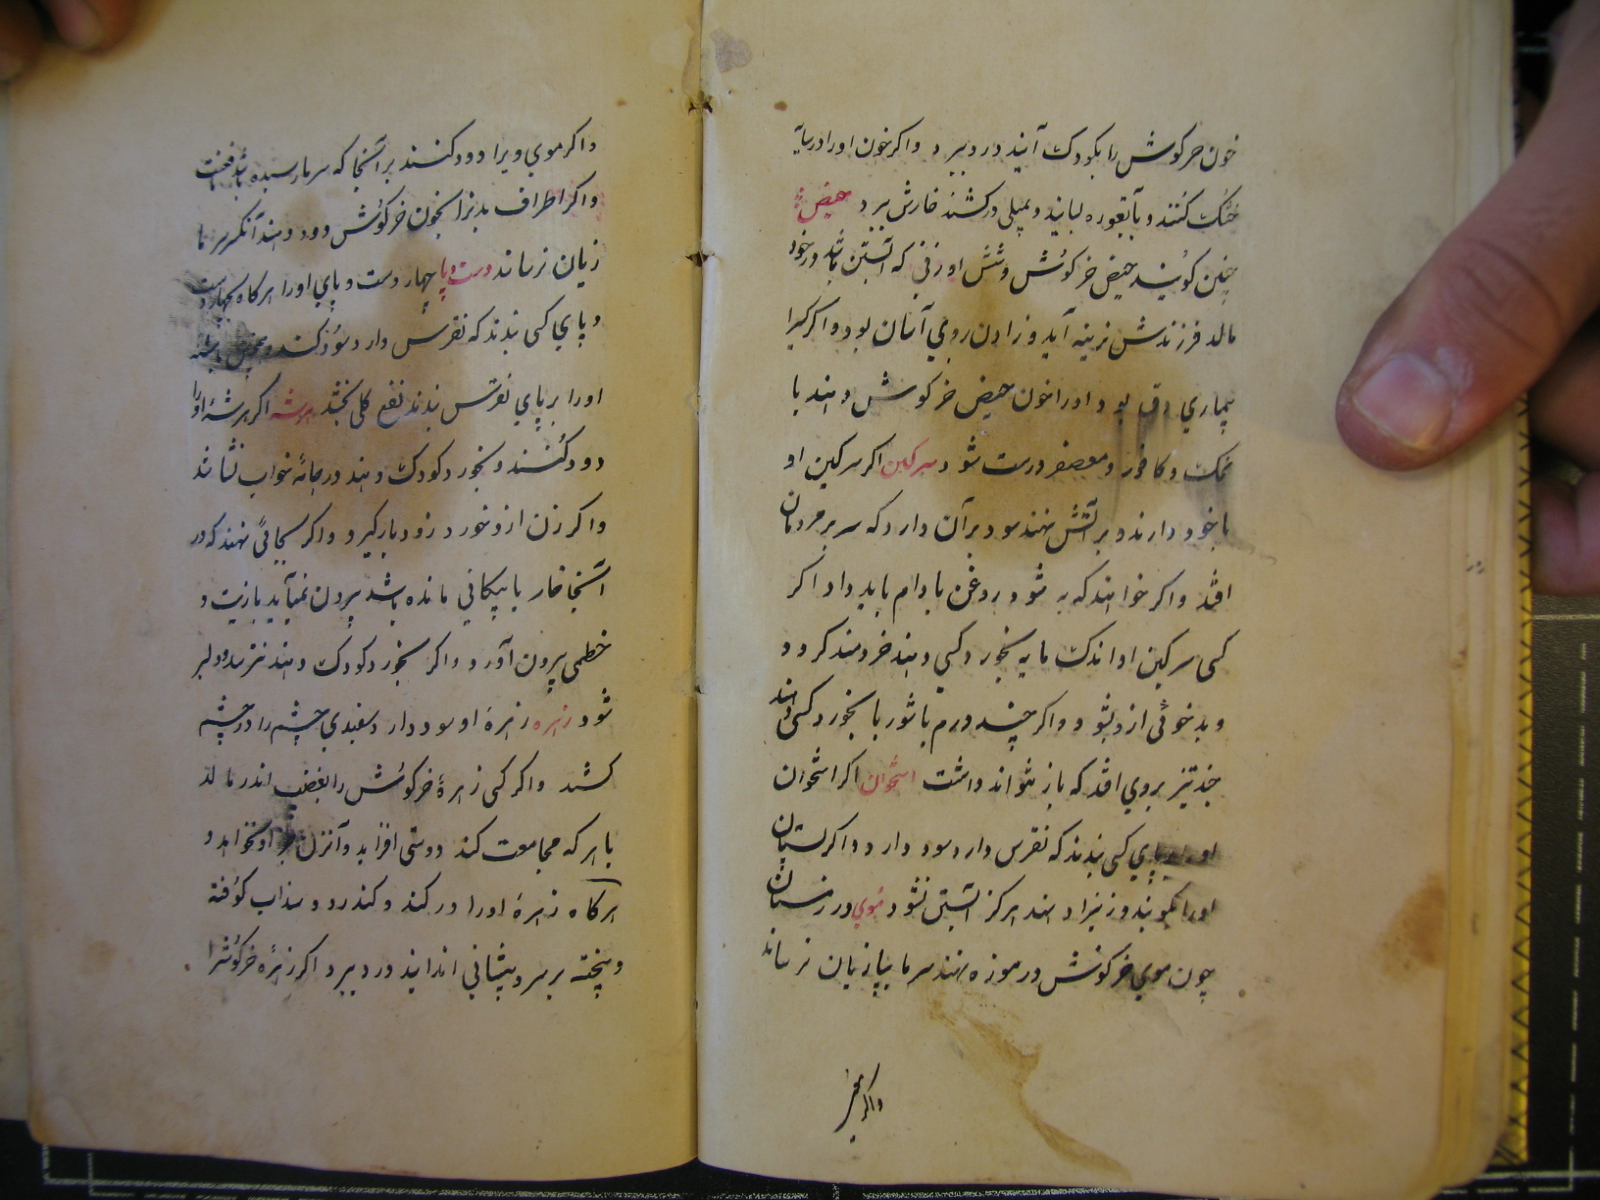 خون خرکوش را بکودک آیند درد ببرد و اکر خون او را در سایه
خشک کنند و بآبغوره بسایند و بمیلی درکشند خارش ببرد حیض
چنین کویند حیض خرکوش و شش او زنی که آبستن باشد و در خود
مالد فرزندش نرینه آید و زادن بروی آسان بود و اکر کسیرا
بیماری دق بود او را خون حیض خرکوش دهند با
نمک و کافور و معصفر درست شود سرکین اکر سرکین او
با خود دارند و بر آتش نهند سود بر آن دارد که سر بر مردمان
افتد و اکر خواهند که به شود روغن بادام باید داد اکر
کسی سرکین او اندک مایه بخورد کسی دهند خردمند کردد و
و بدخوئی ازو بشود و اکر چند درم باشور با بخورد کسی دهند
چند تیز بروی افتد که باز نتواند داشت استخوان اکر استخوان
او بر پای کسی بندند که نقرس دارد سود دارد و اکر پستان
او را بکوبند و زنیرا دهند هرکز آبستن نشود موی در زمستان
چون موی خرکوش در موزه نهند سرما بپا زیان نرساند
و اکر
و اکر موی ویرا دود کنند بر آنجا که سرما رسیده باشد
و اکر اطراف بدنرا بخون خرکوش دود دهند آنکس سرما
زیان نرساند دست و پا چهار دست و پای او را هرکاه بچهار دست
و پای کسی بندند که نقرس دارد سود کند
او را بر پای نقرس بندند نفع کلی بخشد اکر
دود کنند و بخورد کودک دهند در جامه خواب نشاشد
و اکر زن ازو خورد زود بار کیرد و اکر بجائی نهند که در
آنجا خار یا پیکانی مانده باشد بیرون نمیآید با زیت و
خطمی بیرون آورد و اکر بخورد کودک دهند نترسد و دلیر
شود زهره زهرهٔ او سود دارد سفیدی چشم را در چشم
کشند و اکر کسی زهرهٔ خرکوش را بقضیب اندر مالد
با هر که مجامعت کند دوستی افزاید و آنزن جز او نخواهد و
هرکاه زهرهٔ او را در کند و کندر و سداب کوفته
و پخته بر سر و پیشانی اندایند درد ببرد اکر زهرهٔ خرکوشرا